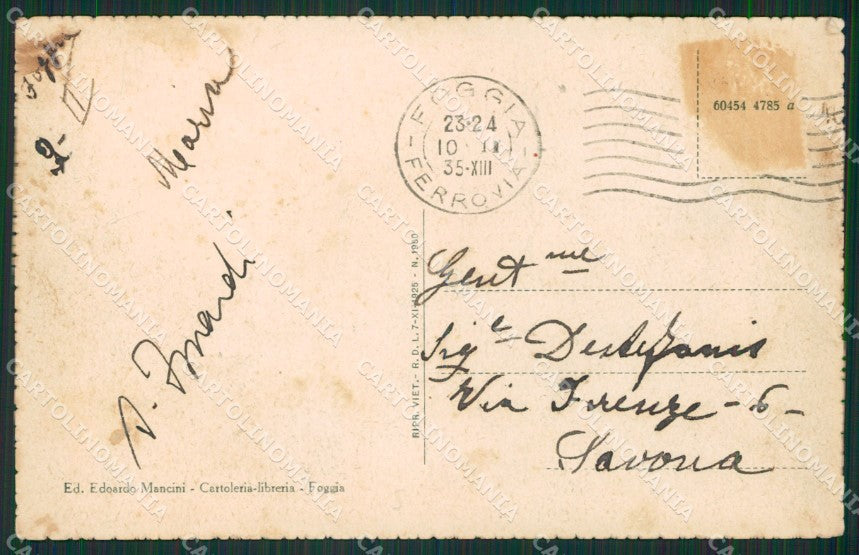 Foggia
2- II
Maria
FOGGIA
23·24
10 II
35·XIII
FERROVIA
60454 4785 a
Gent me
Sig e Destefanis
Via Firenze - 6 -
Savona
RIPR. VIET. - R. D. L. 7-XI-1925 - N. 1950
Ed. Edoardo Mancini - Cartoleria-libreria - Foggia
CARTOLINOMANIA